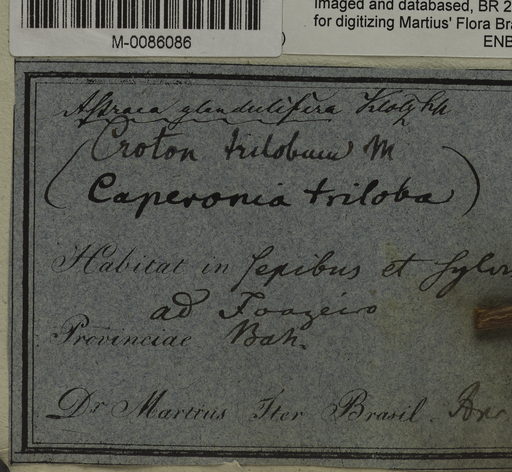 Imaged and databased, BR 2
for digitizing Martius' Flora Bra
ENB
M-0086086
Astraea glandulifera Klotzsch
(Croton trilobum M
Caperonia triloba)
Habitat in sepibus et sylv
ad Joazeiro
Provinciae Bah.
Dr Martius Iter Brasil.